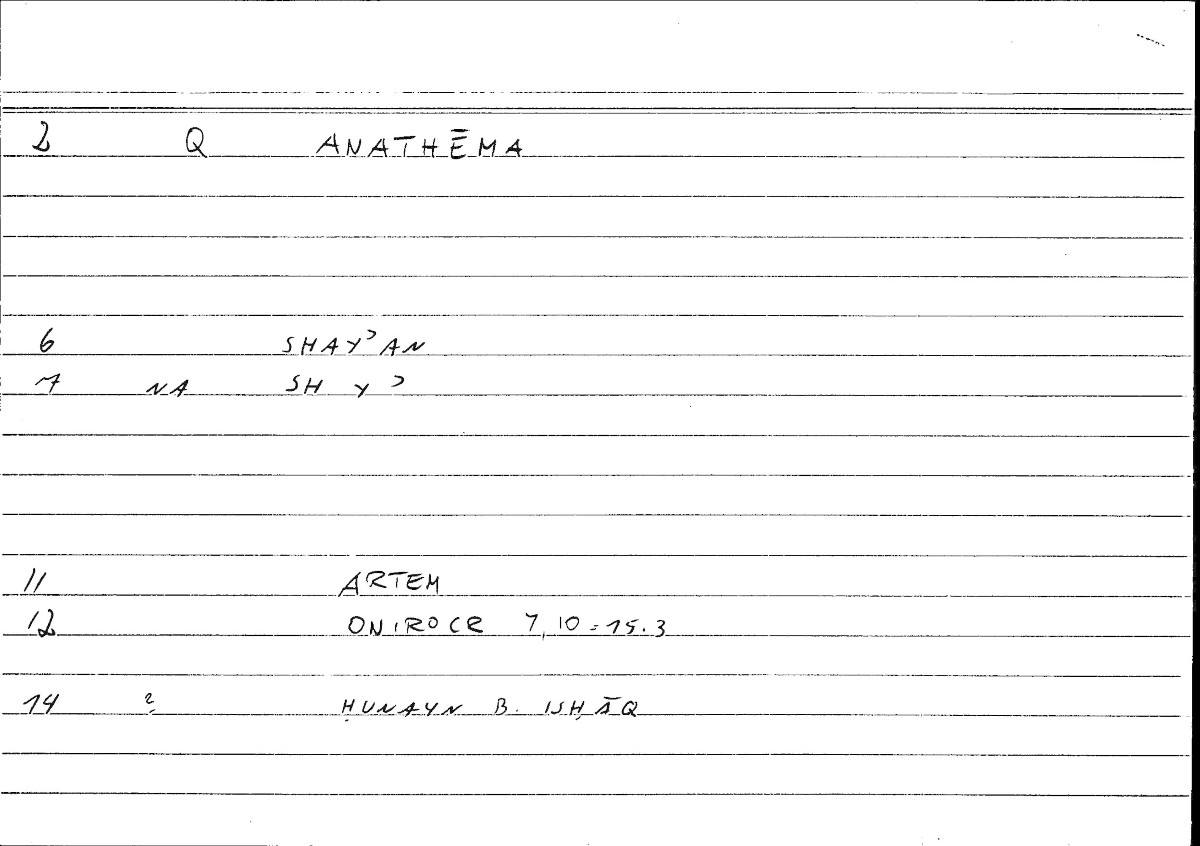 2 Q ANATHĒMA
6 SHAYʾAN
7 NA SH Y ʾ
11 ARTEM
12 ONIROCR 7,10=15.3
14 ? ḤUNAYN B. ISḤĀQ